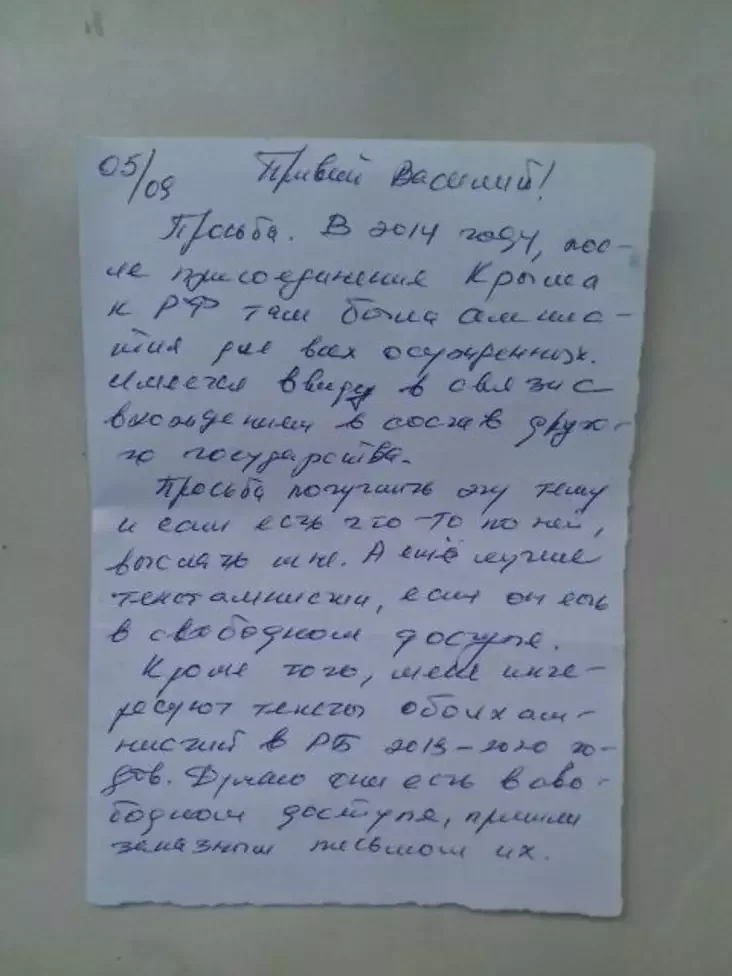 05/09 Привет Василий!
Просьба. В 2014 году, пос-
ле присоединения Крыма
к РФ там была амнис-
тия для всех осужденных.
Имеется ввиду в связи с
вхождением в состав друго-
го государства.
Просьба изучить эту тему
и если есть что-то по ней,
выслать мне. А ещё лучше
текст амнистии, если он есть
в свободном доступе.
Кроме того, меня инте-
ресуют тексты обоих ам-
нистий в РБ 2019-2020 го-
дов. Думаю они есть в сво-
бодном доступе, пришли
заказным письмом их.